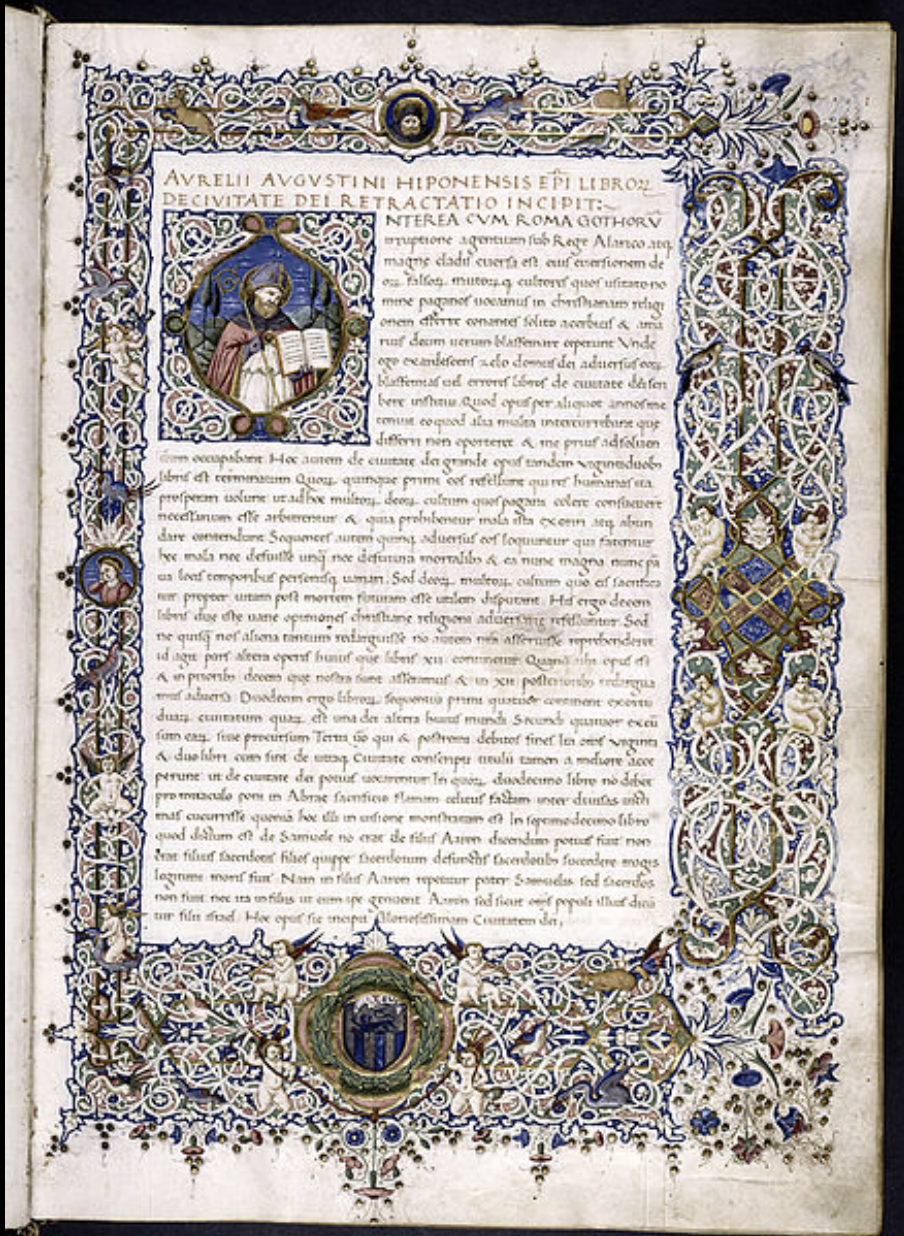 AVRELII AVGVSTINI HIPONENSIS EP̄I LIBROꝜ
DECIVITATE DEI RETRACTATIO INCIPIT:~
NTEREA CVM ROMA GOTHORV̄
irruptione agentium sub Rege Alarico atq
magne cladis euersa est eius euersionem de
oꝝ falsoꝝ multoꝝq cultores quos usitato no
mine paganos uocamus in christianam religi
onem efferre conantes solito acerbius & ama
rius deum uerum blasfemare ceperunt Vnde
ego exardescens zelo domus dei aduersus eoꝝ
blasfemias uel errores libros de ciuitate dei scri
bere institui Quod opus per aliquot annos me
tenuit eo quod alia multa intercurrebant que
differri non oporteret & me prius ad soluen
dum occupabant Hoc autem de ciuitate dei grande opus tandem uigintiduobꝫ
libris est terminatum Quoꝝ quinque primi eos refellunt qui res humanas ita
prosperari uolunt ut ad hoc multoꝝ deoꝝ cultum quos pagani colere consueuert
necessarium esse arbitrentur & quia prohibentur mala ista exoriri atq abun
dare contendunt Sequentes autem quinq aduersus eos loquuntur qui fatentur
hec mala nec defuisse unq̄ nec defutura mortalibꝫ & ea nunc magna nunc pa
ua locis temporibus personisq uariari Sed deoꝝ multoꝝ cultum quo eis sacrifica
tur propter uitam post mortem futuram esse utilem disputant His ergo decem
libris due iste uane opiniones christiane religioni aduersarie refelluntur Sed
ne quisq nos aliena tantum redarguisse no autem nr̄a asseruisse reprehenderet
id agit pars altera operis huius que libris xii continetur Quanq̄ ubi opus est
& in prioribꝫ decem que nostra sunt asseramus & in xii posterioribꝫ redargua
mus aduersa Duodecim ergo libroꝝ sequentiu primi quatuor continent exortu
duaꝝ ciuitatum quaꝝ est una dei altera huius mundi Secundi quatuor excu
sum eaꝝ siue procursum Tertii u̅o qui & postremi debitos fines Ita om̄s uiginti
& duo libri cum sint de utraq Ciuitate conscripti titulu tamen a meliore acce
perunt ut de ciuitate dei potius uocarentur In quoꝝ duodecimo libro no debet
pro miraculo poni in Abrae sacrificio flamam celitus factam inter diuisas uicti
mas cucurrisse quonia hoc illi in uisione monstratum est In septimodecimo libro
quod dictum est de Samuele no erat de filiis Aaron dicendum potius fuit non
erat filius sacerdotis filios quippe sacerdotum defunctis sacerdotibꝫ succedere magis
legitimi moris fuit Nam in filiis Aaron reperitur pater Samuelis sed sacerdos
non fuit nec ita in filiis ut eum ipe genuerit Aaron sed sicut om̄s populi illius dicu
tur filii israel Hoc opus sic incipit Gloriosissimam Ciuitatem dei,